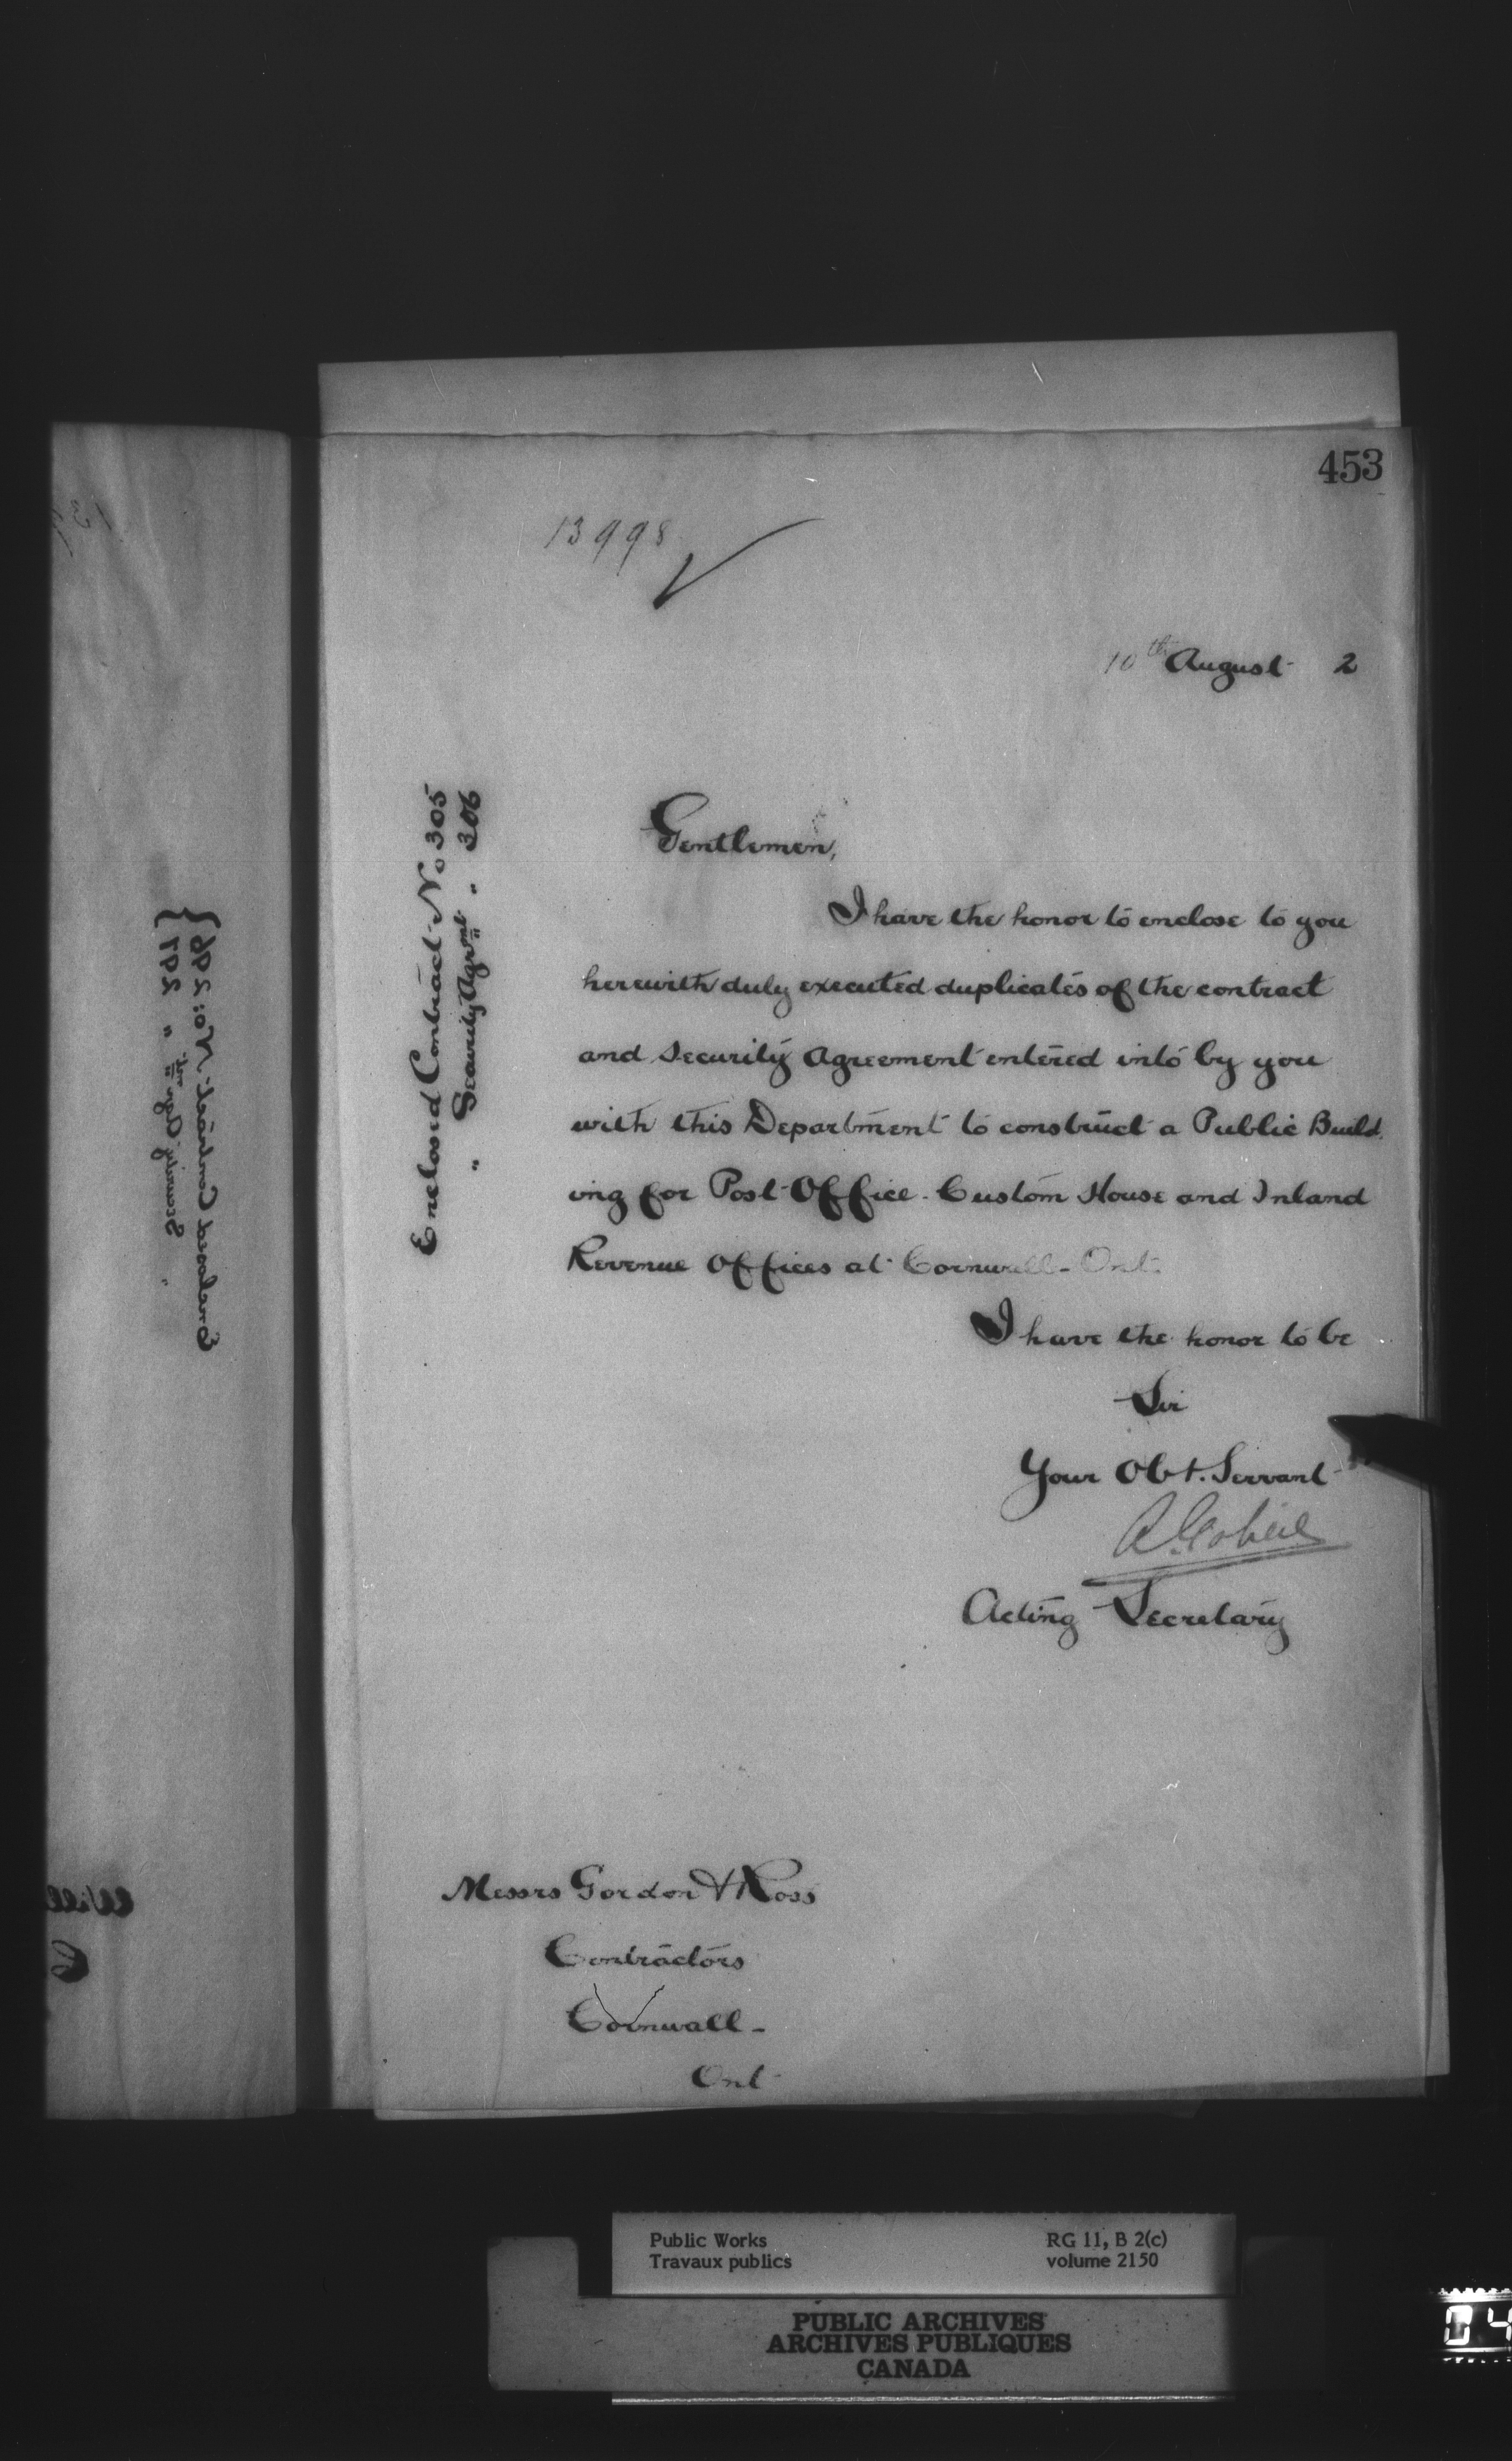 453
13998
10th August 2
Enclosed Contract No 305
" Security Agrmt " 306
Gentlemen,
I have the honor to enclose to you
herewith duly executed duplicates of the contract
and Security Agreement entered into by you
with this Department to construct a Public Build
ing for Post Office. Custom House and Inland
Revenue Offices at Cornwall - Ont.
I have the honor to be
Sir
Your Obt. Servant
A Gobeil
Acting Secretary
Messrs Gordon & Ross
Contractors
Cornwall -
Ont
Enclosed Contract No: 296
" Security Agrmt " 297
Public Works
Travaux publics
RG 11, B 2(c)
volume 2150
PUBLIC ARCHIVES
ARCHIVES PUBLIQUES
CANADA